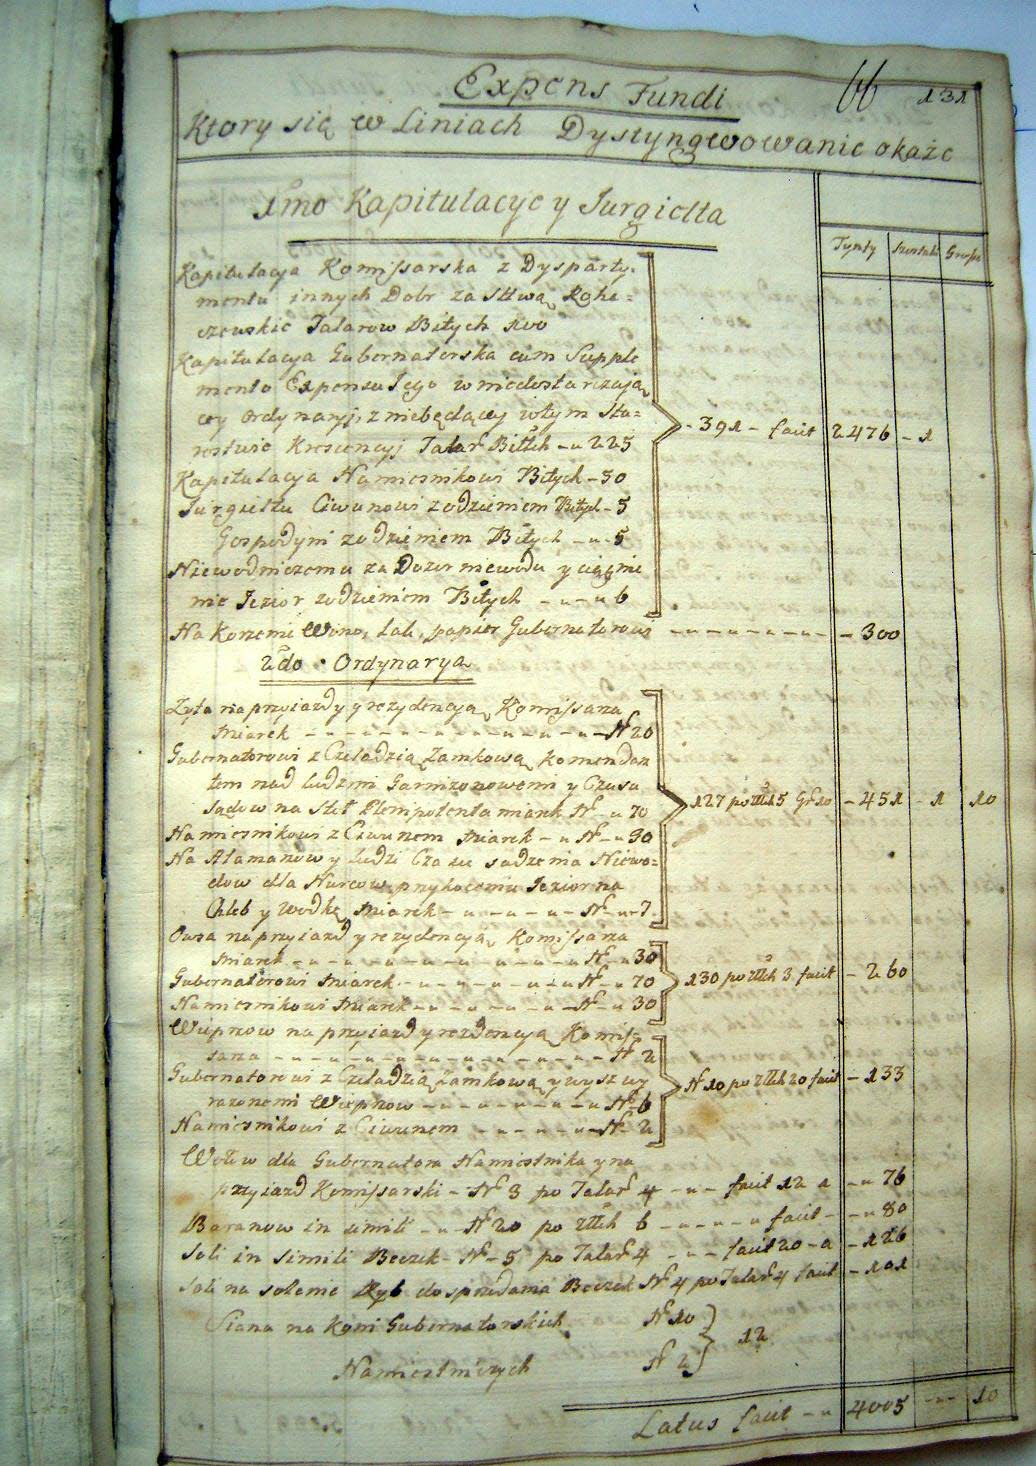 66 131
Expens Fundi
Ktory się w Liniach Dystyngwowanie okaże
1mo Kapitulacye y Jurgielta
Tynfy Szostaki Grosze
Kapitulacya Komissarska z Dysparty-
mentu innych Dobr za Sttwą Roha=
czewskie Talarow Bitych 100
Kapitulacya Gubernatorska cum Supple
mento Expensu Jego w niedostarczają
cey ordynaryi, z niebędącey w tym Sta=
rostwie Krescencyi Talar Bittch - u 225
Kapitulacya Namiesnikowi Bitych - 50
Jurgieltu Ciwunowi z odzieniem Bitych - 5
Gospodyni z odzieniem Bitych - u - 5
Niewodniczemu za Dozor niewodu y
nie Jezior z odzieniem Bitych - u - u 6
- 391 - facit 2476 - 1
Na Korzenie Wino, Łoie, papier Gubernatorowi - 300
2do Ordynarya
Zyta na przyiazdy y rezydencyą Komissarza
Miarek - N 20
Gubernatorowi z Czeladzią Zamkową Komendan
tem nad ludzmi Garnizonowemi y Czasu
Sądow na Plenipotenta miarek N - u 70
Namiesnikowi z Ciwunem Miarek - u N - u 30
Na Atamanow y ludzi Czasu sadzenia Niewo=
dow dla Nurcow przy Jezior na
Chleb y Wodkę Miarek - u - u - u - N - u - 7
127 po złłch 5 Gr 10 - 451 - 1 10
Owsa na przyiazd y rezydencyą Komissarza
Miarek - N - u 30
Gubernatorowi Miarek - N - u 70
Namiesnikowi Miarek - N - u 30
130 po złłch 3 facit - 260
Wieprzow na przyiazd y rezydencyą Komis=
sarza - N 2
Gubernatorowi z Czeladzią Zamkową y wyszwy
razonemi Wieprzow - N - 6
Namiesnikowi z Ciwunem - N - 2
N 10 po złłch 20 facit - 133
Wołow dla Gubernatora Namiestnika y na
przyiazd Komissarski - N 3 po Talar 4 - u - facit 12 - u 76
Baranow in simili - u - N 20 po złłch 6 - u - u - u facit - u 80
Soli in simili Beczek - N - 5 po Talar 4 - u - facit 20 - u - 126
Soli na solenie Ryb do sprzedania Beczek N 4 po Talar 4 facit - 101
Siana na Koni Gubernatorskich N 10
Namiestniczych N 2
12
Latus facit - u 4005 - - - 10